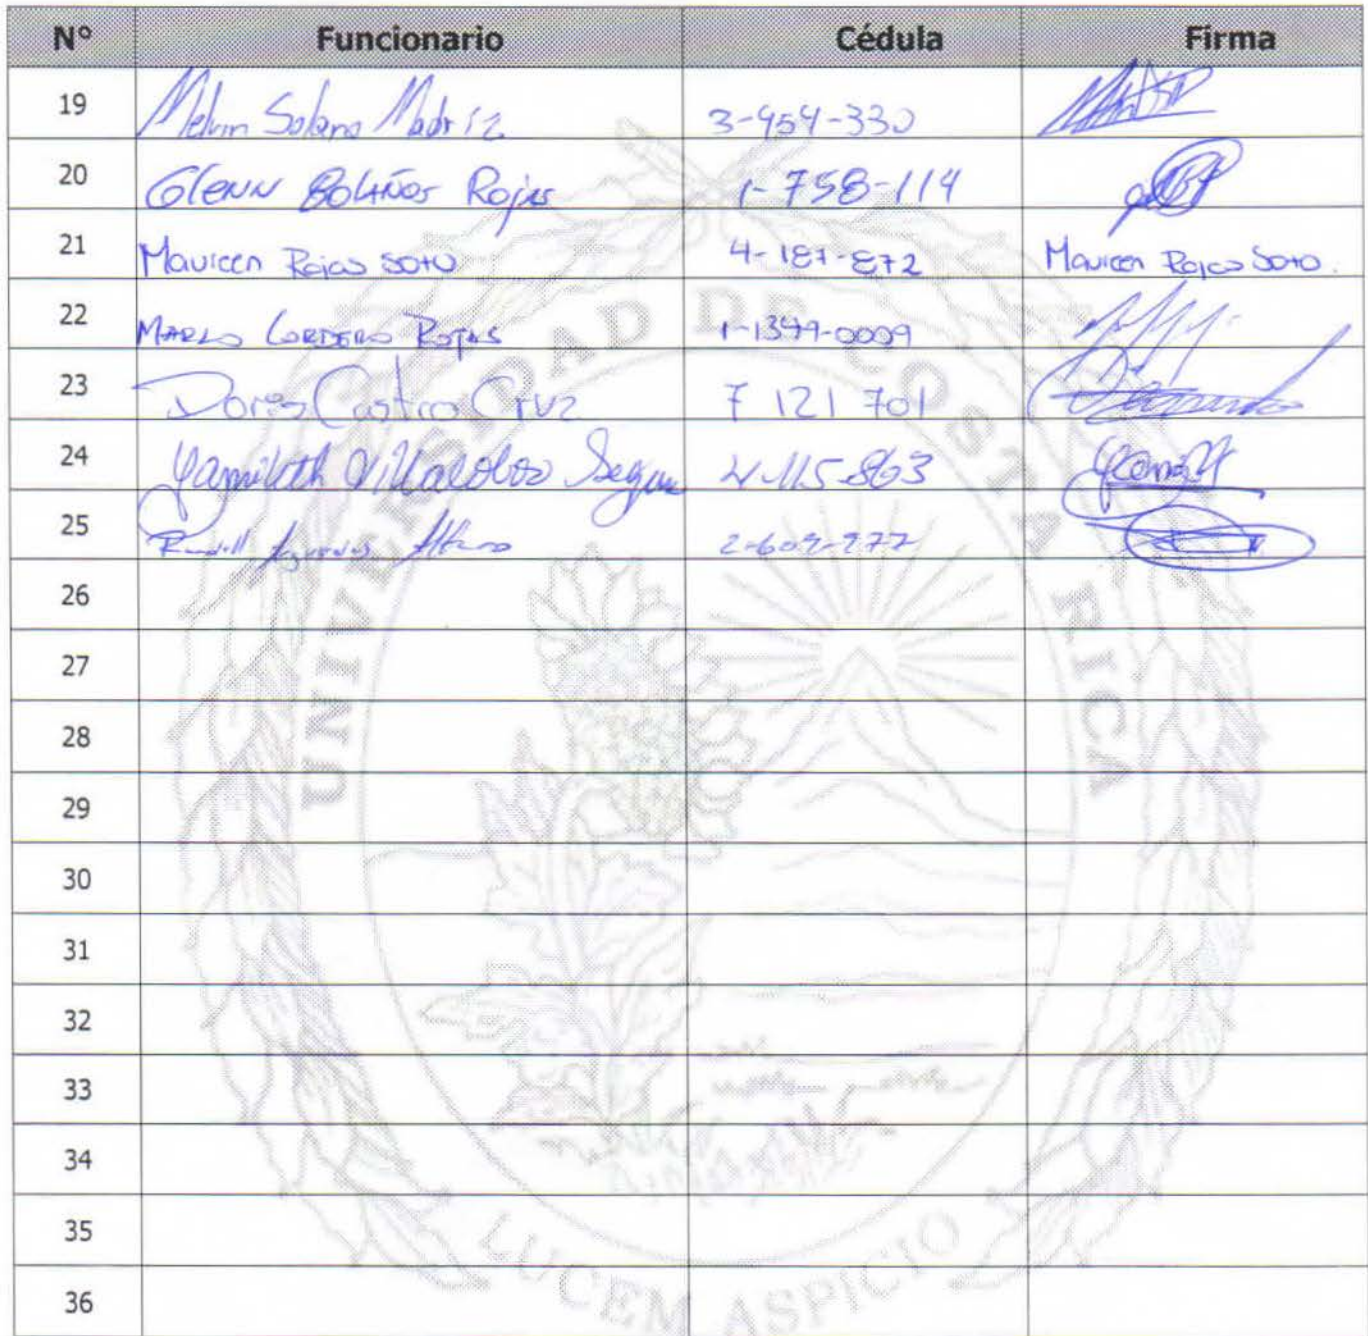 N° Funcionario Cédula Firma
19 Melvin Solano Madriz 3-454-330
20 Glenn Bolaños Rojas 1-758-114
21 Mauricen Rojas Soto 4-187-872 Mauricen Rojas Soto.
22 MARLO CORDERO ROJAS 1-1349-0009
23 Doris Castro Cruz 7 121 701
24 Yamileth Villalobos 4-115-863
25 Randall Alfaro 2-609-977
26
27
28
29
30
31
32
33
34
35
36
UNIVERSIDAD DE COSTA RICA
LUCEM ASPICIO